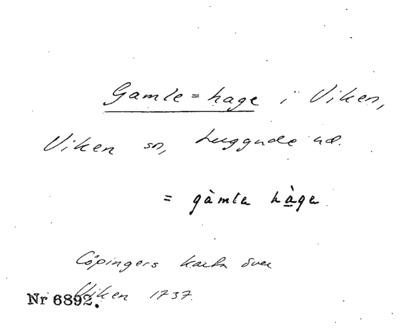 Gamle=hage i Viken,
Viken sn, Luggude hd.
= gàmla hàga
Cöpingers karta över
Viken 1737.
Nr 6892.